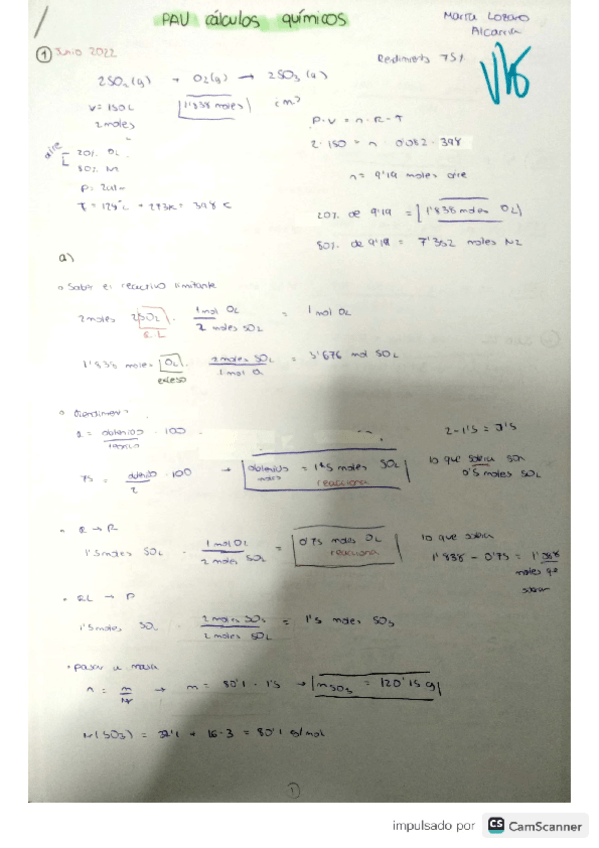 PAU cálculos químicos
Marta Lozano
Alcaraz
1 Junio 2022
Redimiento 75%
2SO₂(g) + O₂(g) → 2SO₃(g)
V = 150L
1'838 moles
¿m?
2 moles
P·V = n·R·T
aire
20% O₂
80% N₂
2·150 = n 0'082·398
n = 9'19 moles aire
20% de 9'19 = 1'838 moles O₂
80% de 9'19 = 7'352 moles N₂
a)
Saber el reactivo limitante
2 moles 2SO₂ · 1 mol O₂ / 2 moles SO₂ = 1 mol O₂
R.L
1'838 moles O₂ · 2 moles SO₂ / 1 mol O₂ = 3'676 mol SO₂
exceso
Rendimiento
R = obtenido / teórico · 100
2-1'5 = 0'5
75 = obtenido / 2 · 100 → obtenido = 1'5 moles SO₂
reacciona
lo que sobra son
0'5 moles SO₂
R → R
1'5 moles SO₂ · 1 mol O₂ / 2 moles SO₂ = 0'75 moles O₂
reacciona
lo que sobra
1'838 - 0'75 = 1'088
moles que
sobran
RL → P
1'5 moles SO₂ · 2 moles SO₃ / 2 moles SO₂ = 1'5 moles SO₃
pasar a masa
n = m / M → m = 80'1 · 1'5 → mSO₃ = 120'15 g
M(SO₃) = 32'1 + 16·3 = 80'1 g/mol
1
impulsado por CS CamScanner